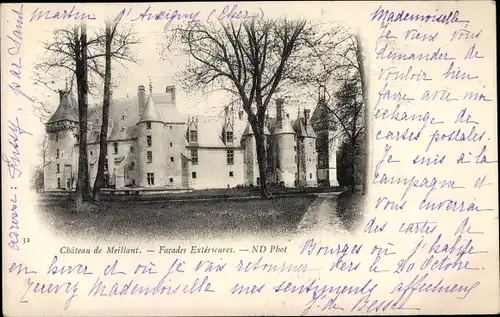 Martin d'Auxigny (Cher)
adresse : Fussy, par St
Mademoiselle
Je viens vous
demander de
vouloir bien
faire avec moi
échange de
cartes postales.
Je suis à la
campagne et
vous enverrai
des cartes de
Bourges où j'habite
en hiver et où je vais retourner vers le 20 Octobre.
Recevez Mademoiselle mes sentiments affectueux
J. de Besse
32
Château de Meillant. — Façades Extérieures. — ND Phot